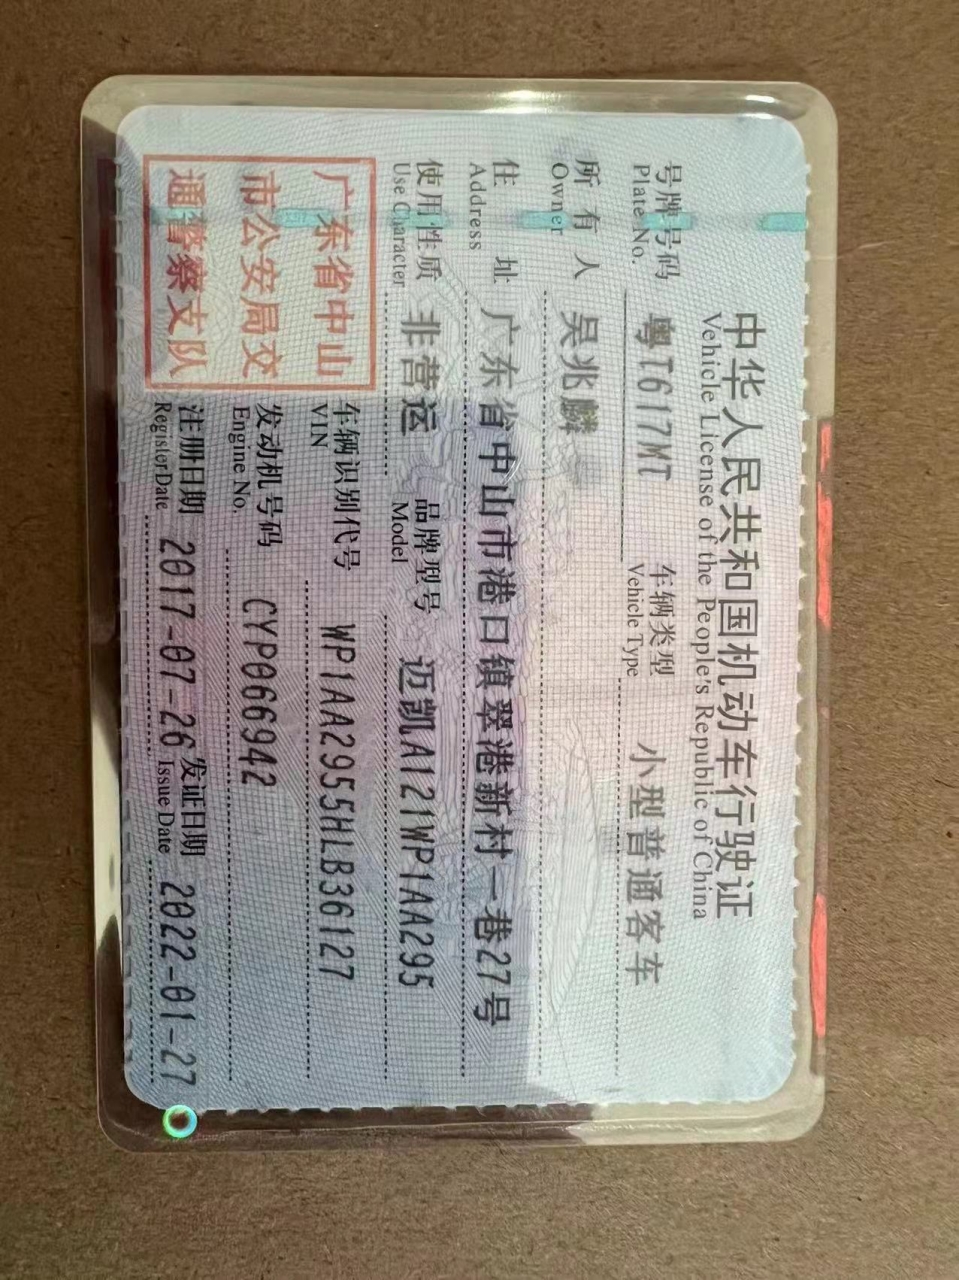 中华人民共和国机动车行驶证
Vehicle License of the People's Republic of China
号牌号码 粤T617MT 车辆类型 小型普通客车
Plate No. Vehicle Type
所有人 吴兆麟
Owner
住址 广东省中山市港口镇翠港新村一巷27号
Address
使用性质 非营运 品牌型号 迈凯A121WP1AA295
Use Character Model
广东省中山
市公安局交
通警察支队
车辆识别代号 WP1AA2955HLB36127
VIN
发动机号码 CYP066942
Engine No.
注册日期 2017-07-26 发证日期 2022-01-27
Register Date Issue Date